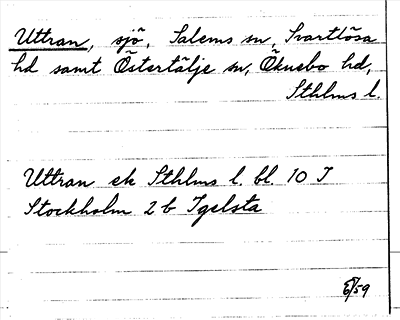 Uttran, sjö, Salems sn, Svartlösa
hd samt Östertälje sn, Öknebo hd,
Sthlms l.
Uttran ek Sthlms l. bl. 10 I
Stockholm 2 b Igelsta